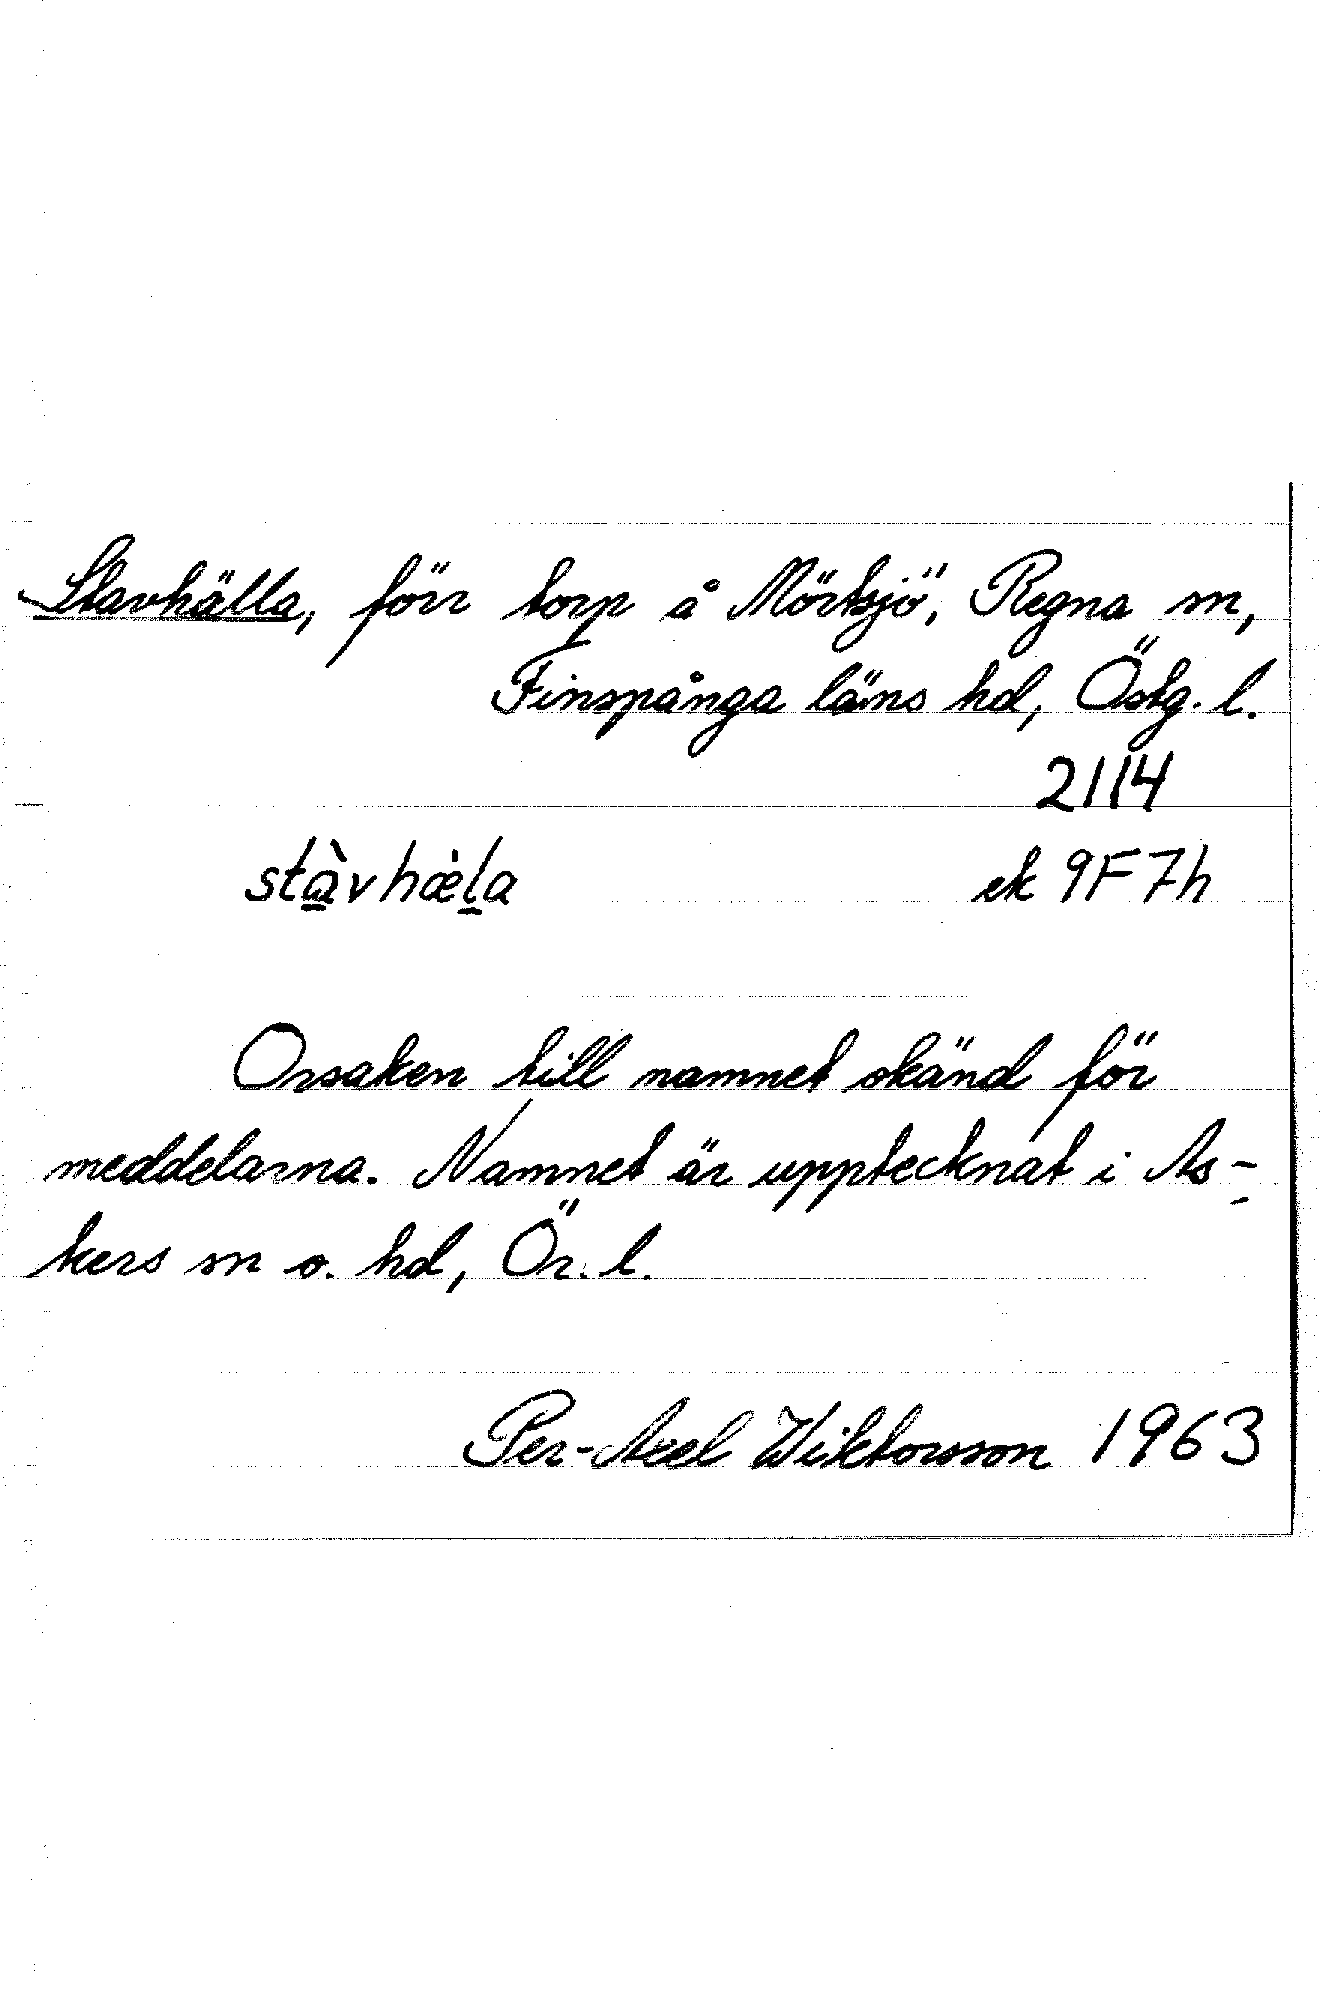 Stavhälla, förr torp å Mörtsjö, Regna sn,
Finspånga läns hd, Östg. l.
2114
stàvhæ̀la ek 9F7h
Orsaken till namnet okänd för
meddelarna. Namnet är upptecknat i As-
kers sn o. hd, Ör. l.
Per-Axel Wiktorsson 1963